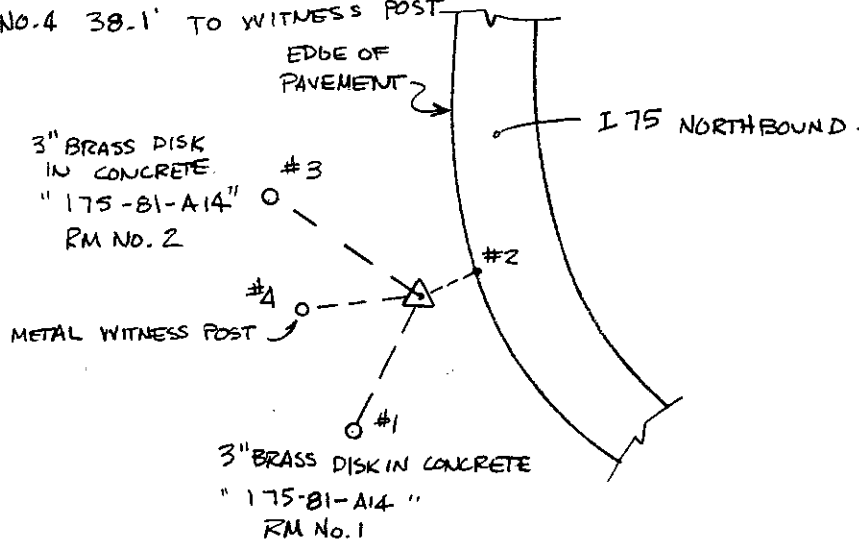 No.4 38.1' TO WITNESS POST
EDGE OF
PAVEMENT
I 75 NORTHBOUND.
3" BRASS DISK
IN CONCRETE.
" I75-81-A14"
RM No. 2
#3
#2
#4
METAL WITNESS POST
#1
3" BRASS DISK IN CONCRETE
" I75-81-A14 "
RM No. 1